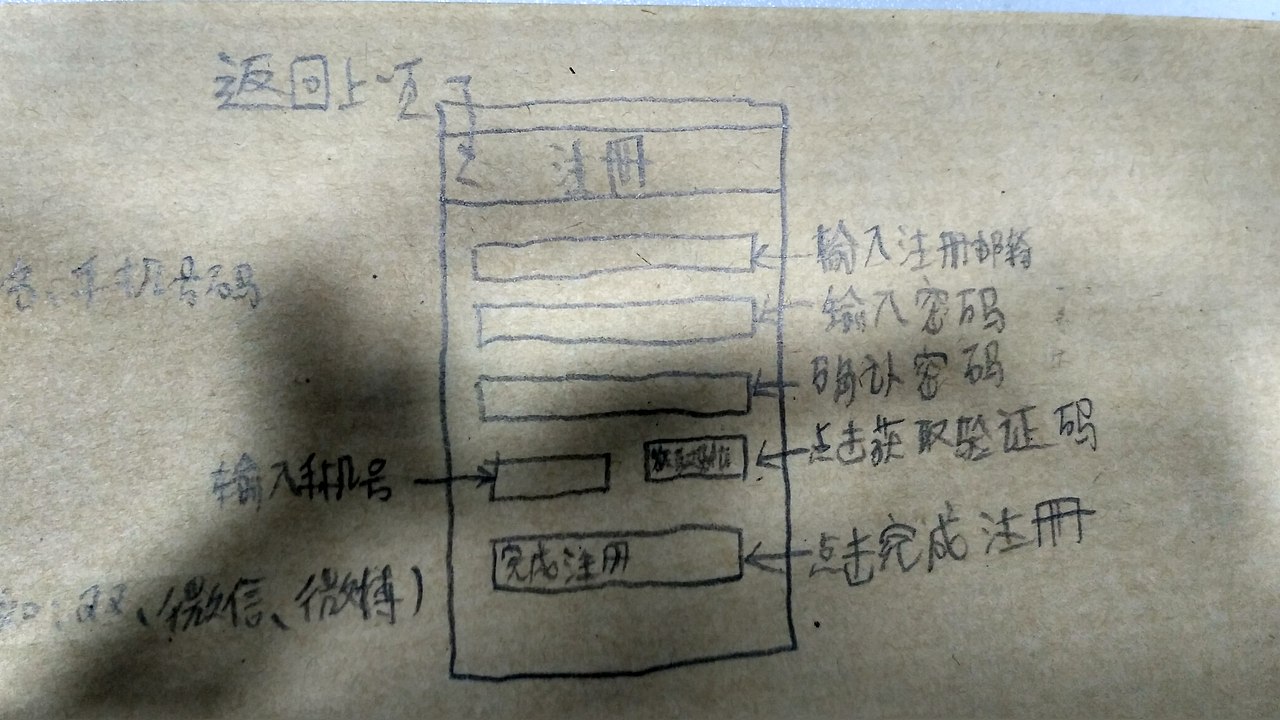 返回上一页
注册
输入注册邮箱
名、手机号码
输入密码
确认密码
点击获取验证码
输入手机号
点击完成注册
完成注册
QQ、微信、微博)